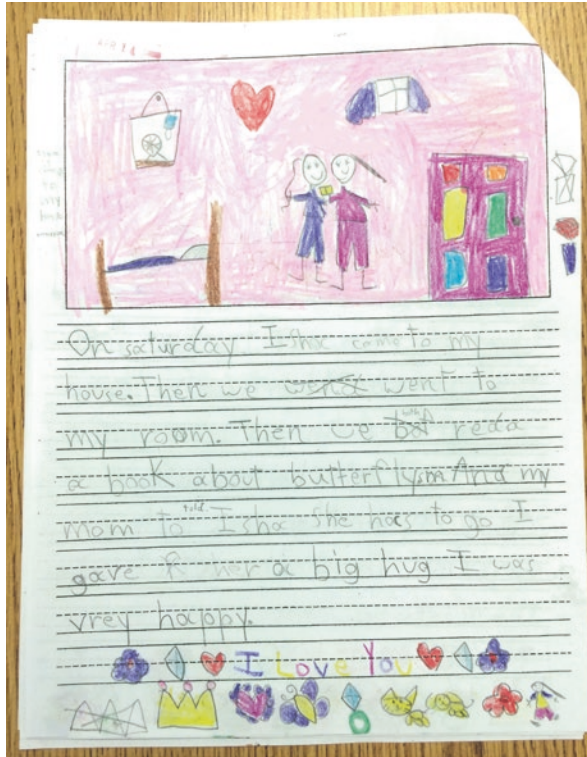 On saturday Isha came to my
house. Then we wend went to
my room. Then we reda
a book about butterflysm And my
mom to told Isha she has to go I
gave her a big hug I was
vrey happy.
I Love You